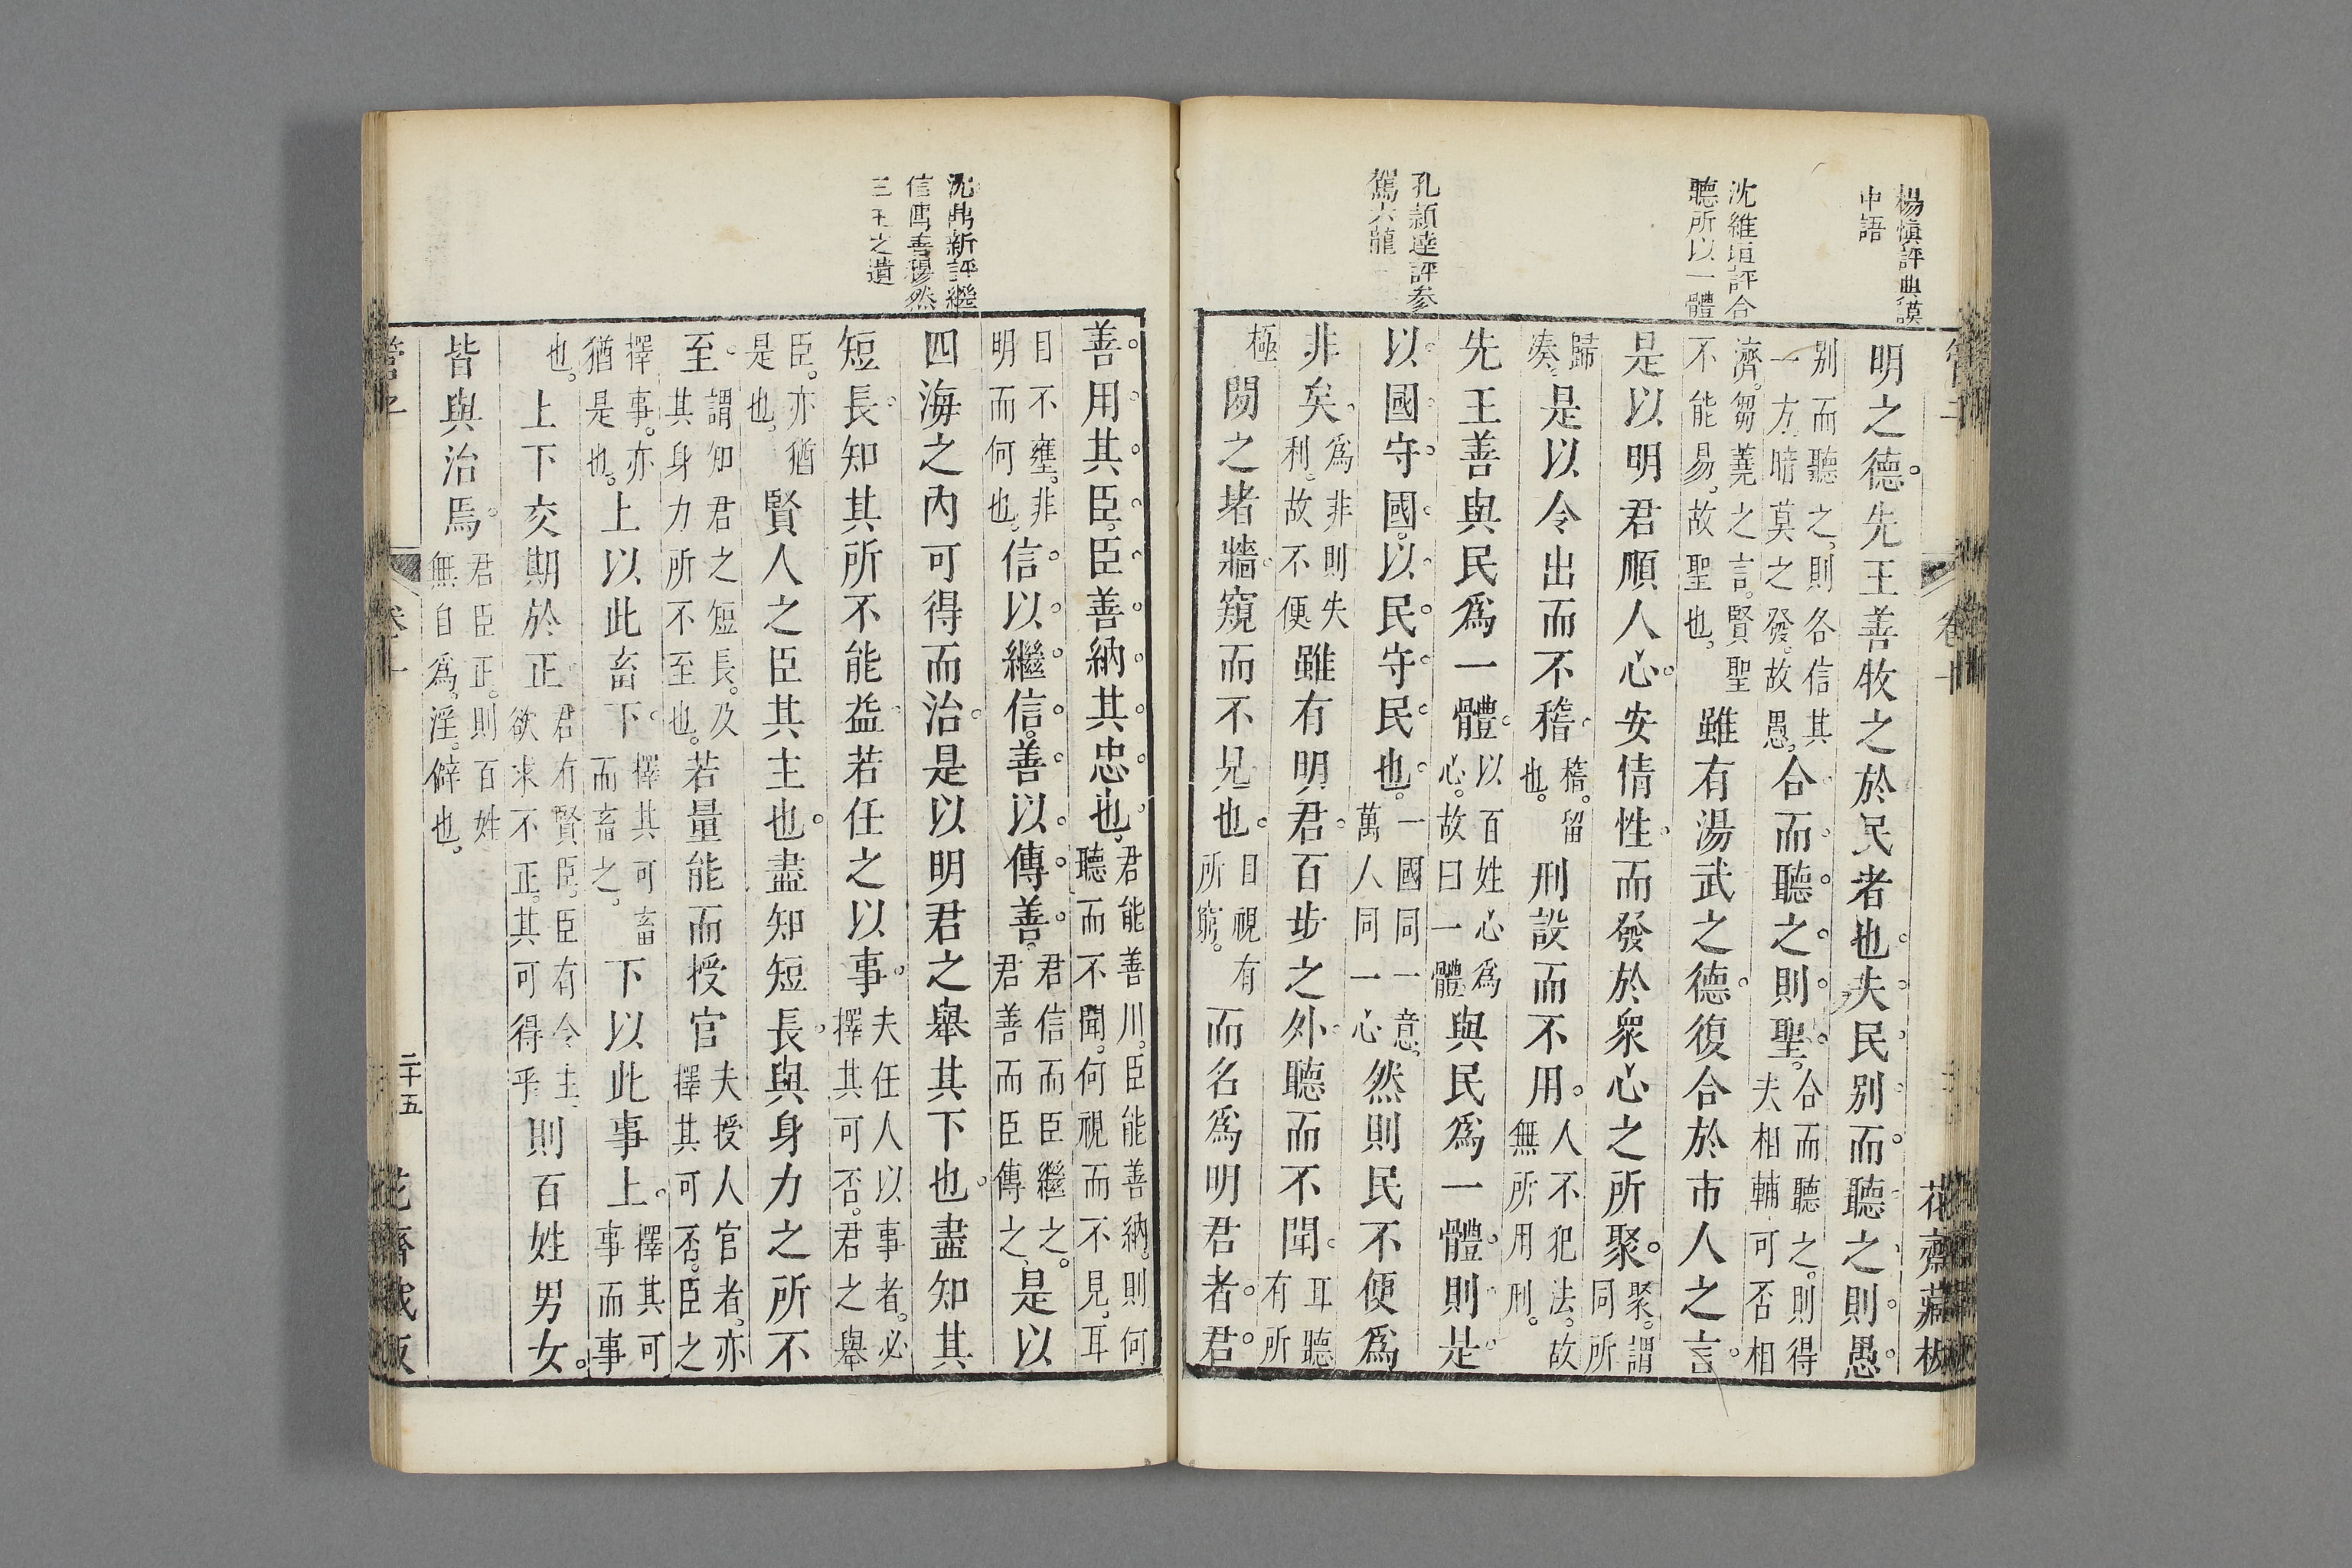 楊愼評典謨
中語
沈維垣評合
聽所以一體
孔穎達評參
駕六龍
明之德先王善牧之於民者也夫民别而聽之則愚
别而聽之則各信其
一方暗莫之發故愚
合而聽之則聖
合而聽之則得
夫相輔可否相
濟芻蕘之言賢聖
不能易故聖也
雖有湯武之德復合於市人之言
是以明君順人心安情性而發於衆心之所聚
聚謂
同所
歸
湊
是以令出而不稽
稽留
也
刑設而不用
人不犯法故
無所用刑
先王善與民爲一體
以百姓心爲
心故曰一體
與民爲一體則是
以國守國以民守民也
一國同一意
萬人同一心
然則民不便爲
非矣
爲非則失
利故不便
雖有明君百步之外聽而不聞
耳聽
有所
極
閒之堵牆窺而不見也
目視有
所窮
而名爲明君者君
管子
卷十
花齋藏板
沈鼎新評繼
信傳善穆然
三王之遺
善用其臣臣善納其忠也
君能善川臣能善納則何
聽而不聞何視而不見耳
目不壅非
明而何也
信以繼信善以傳善
君信而臣繼之
君善而臣傳之
是以
四海之内可得而治是以明君之舉其下也盡知其
短長知其所不能益若任之以事
夫任人以事者必
擇其可否君之舉
臣亦猶
是也
賢人之臣其主也盡知短長與身力之所不
至
謂知君之短長及
其身力所不至也
若量能而授官
夫授人官者亦
擇其可否臣之
擇事亦
猶是也
上以此畜下
擇其可畜
而畜之
下以此事上
擇其可
事而事
也
上下交期於正
君有賢臣臣有令主
欲求不正其可得乎
則百姓男女
皆與治焉
君臣正則百姓
無自爲淫僻也
管子
卷十
二十五
花齋藏板